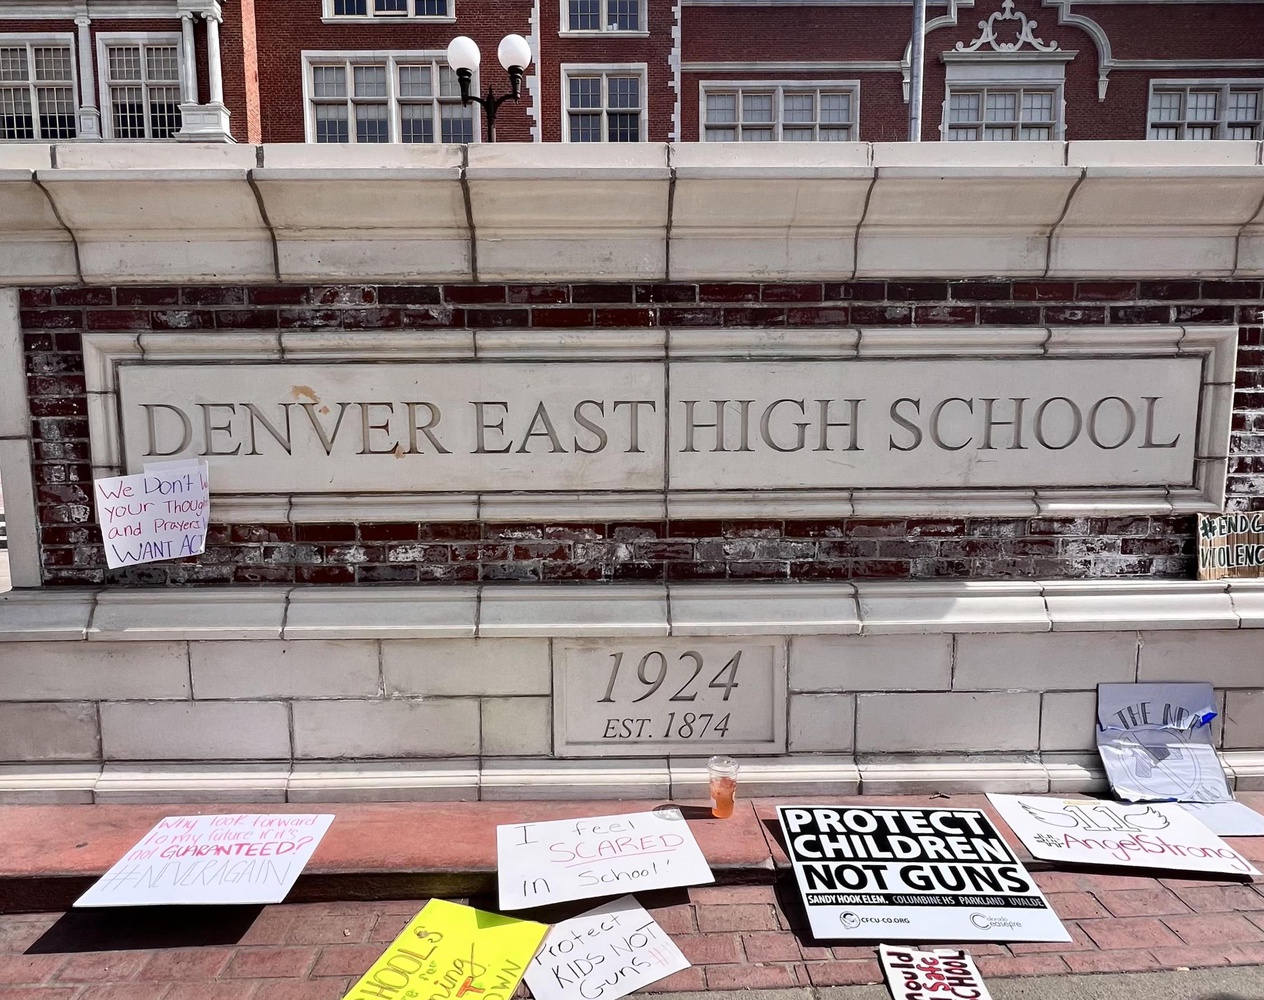 DENVER EAST HIGH SCHOOL
We Don't
your Thoug
and Prayers!
WANT AC
#END G
VIOLENC
1924
EST. 1874
THE NRA
Why look forward
to my future if it's
not GUARANTEED?
#NEVERAGAIN
I feel
SCARED
in School!
PROTECT
CHILDREN
NOT GUNS
SANDY HOOK ELEM. COLUMBINE HS PARKLAND UVALDE
CFCU-CO.ORG
Colorado
Ceasefire
11
#AngelStrong
HOOLS
re for
ning
OWN
Protect
KIDS NOT
Guns
hould
Safe
CHOOL